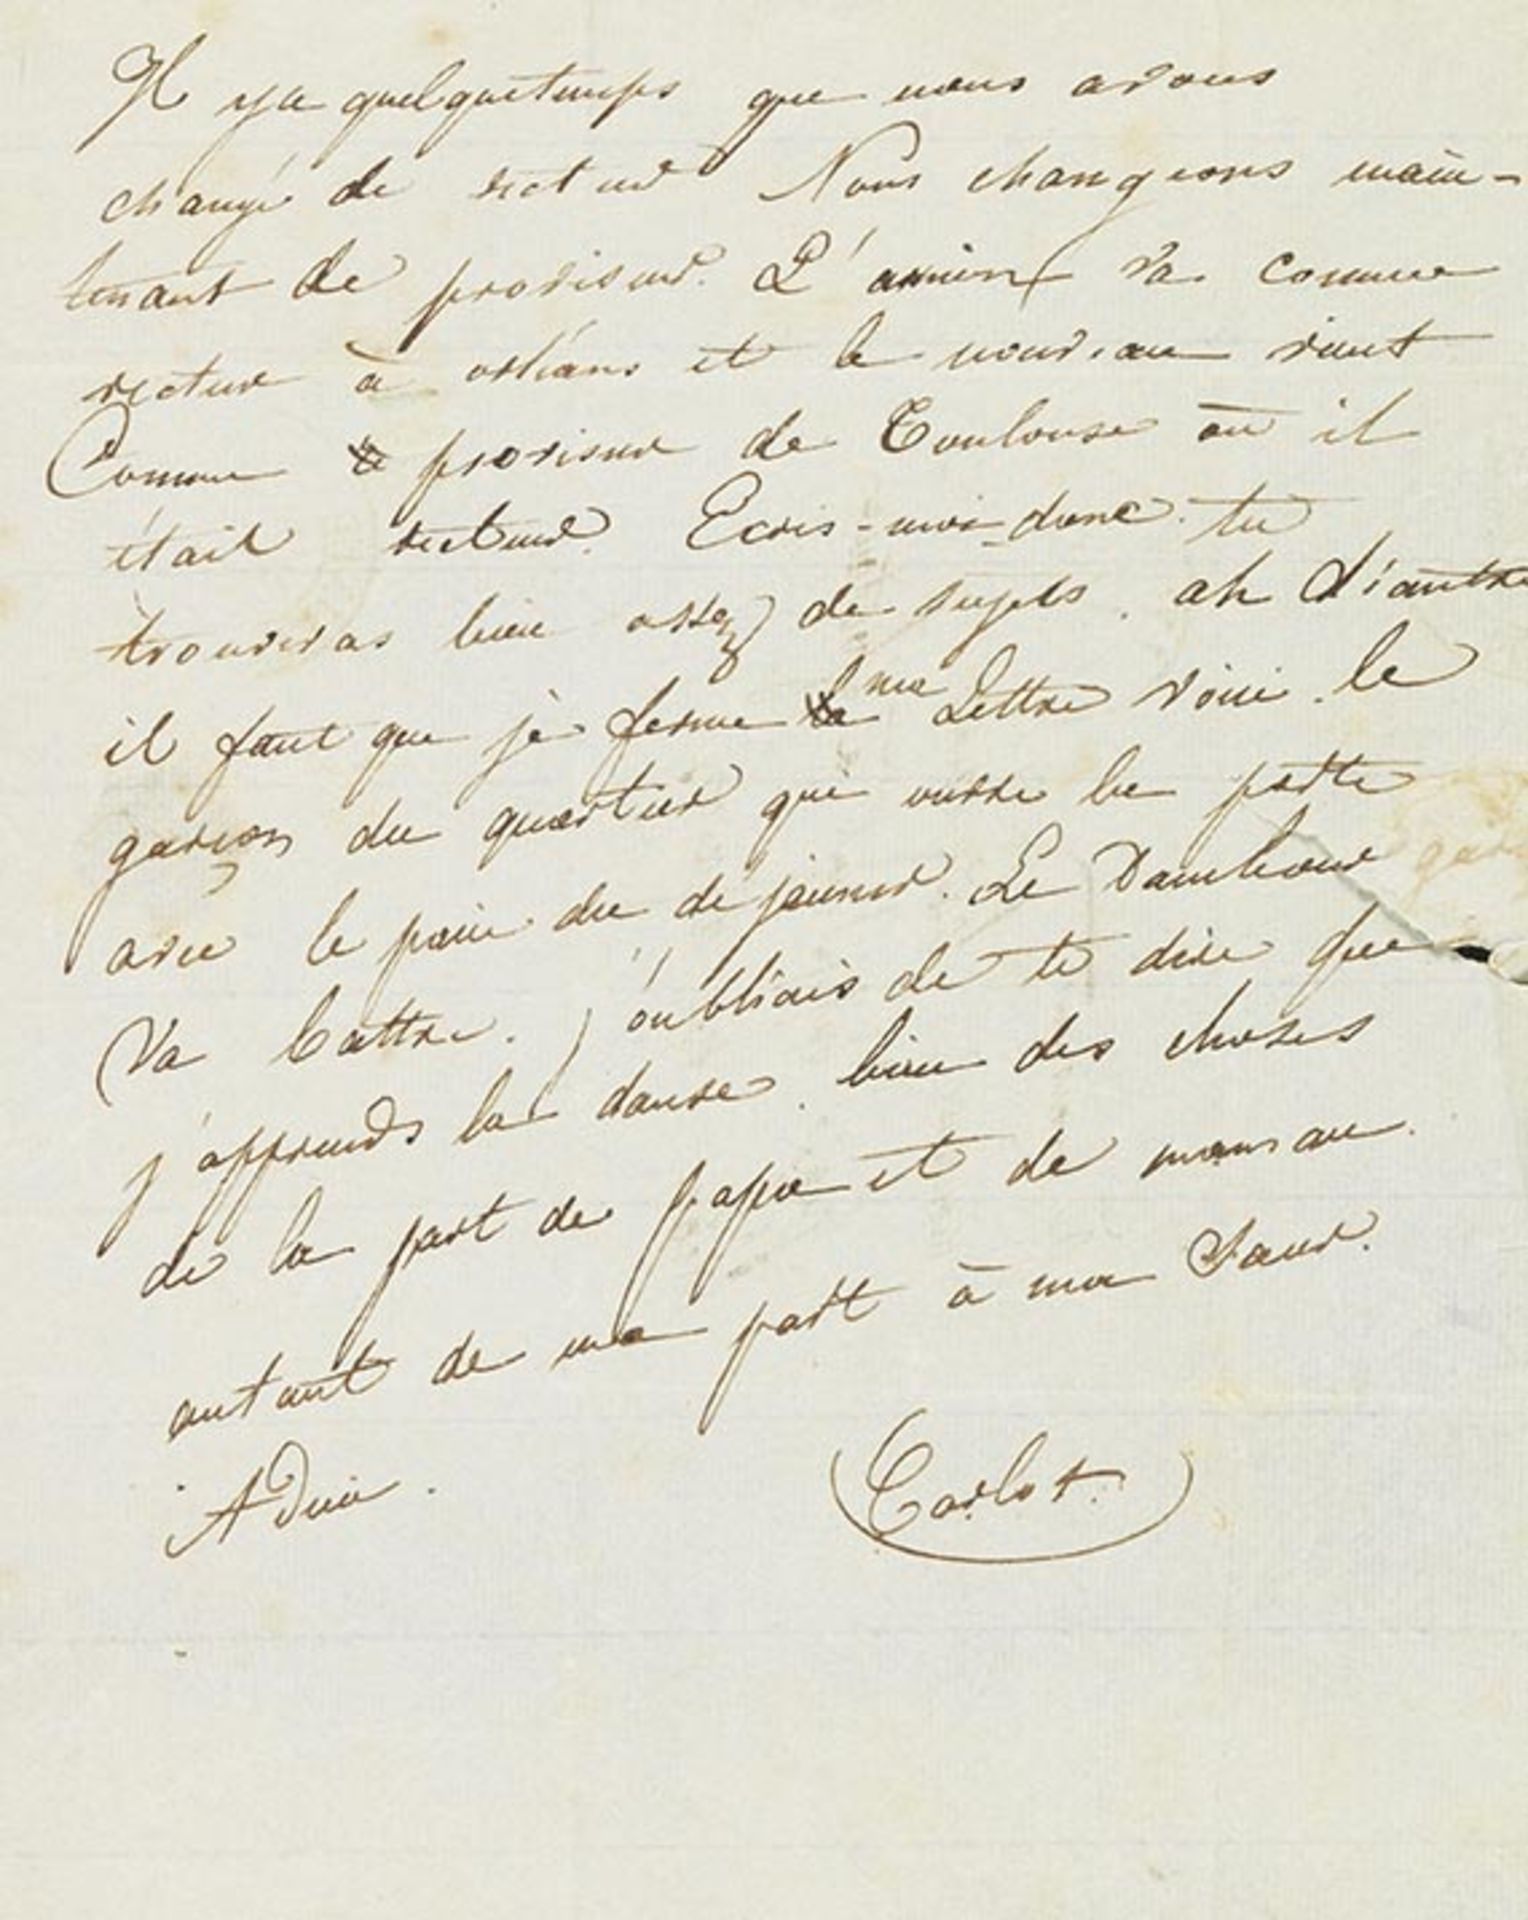 Il y a quelque temps que nous avons
changé de recteur Nous changeons main-
tenant de proviseur. L'ancien va comme
recteur à orléans et le nouveau vient
Comme proviseur de Toulouse où il
était recteur. Ecris-moi donc. tu
trouveras bien assez de sujets. ah diantre
il faut que je ferme la ma Lettre voici le
garçon du quartier qui ouvre la porte
avec le pain du dejeuner. Le Tambour
Va battre. J'oubliais de te dire que
j'apprends la danse. bien des choses
de la part de papa et de maman.
autant de ma part à ma Sœur.
Adieu.
Carlos.